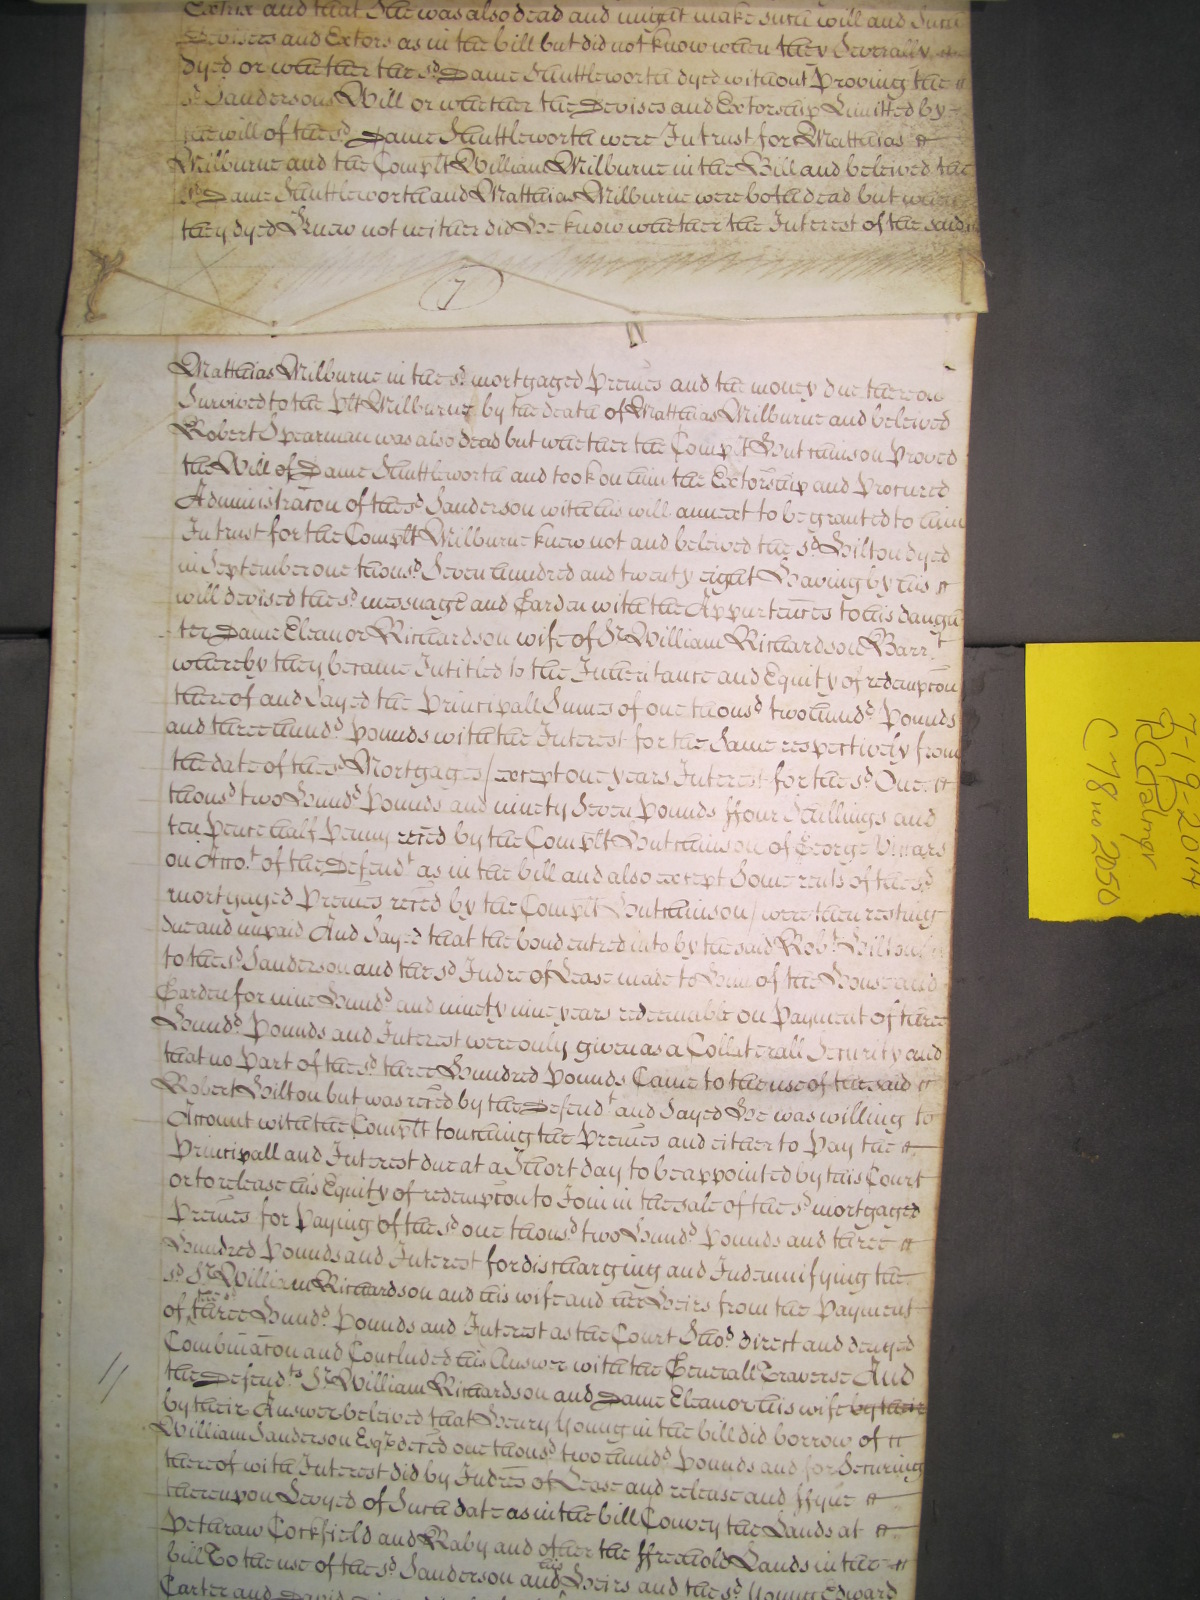 Extrix and that She was also dead and might make such will and Such
Devisees and Extors as in the bill but did not know when they Severally
dyed or whether the sd Dame Shuttleworth dyed without Proving the
sd Sandersons Will or whether the Devises and Extorship Limitted by
the will of the sd Dame Shuttleworth were In trust for Matthias
Milburne and the Complt William Milburne in the Bill and beleived the
sd Dame Shuttleworth and Matthias Milburne were both dead but when
they dyed Knew not neither did He know whether the Interest of the said
7
Matthias Milburne in the sd mortgaged Premes and the money due thereon
Survived to the plt Milburne by the death of Matthias Milburne and beleived
Robert Spearman was also dead but whether the Complt Hutchinson Proved
the Will of Dame Shuttleworth and took on him the Extorship and Procured
Administracon of the sd Sanderson with his will annext to be granted to him
In trust for the Complt Milburne knew not and beleived the sd Hilton dyed
in September one thousd Seven hundred and twenty eight Having by his
will devised the sd messuage and Garden with the Appurtences to his daugh
ter Dame Eleanor Richardson wife of Sr William Richardson Barrt
whereby they became Intitled to the Inheritance and Equity of redempcon
thereof and Sayed the Principall Sumes of one thousd two hundd Pounds
and three hundd Pounds with the Interest for the Same respectively from
the date of the sd Mortgages (except one years Interest for the sd One
thousd two Hundd Pounds and ninety Seven pounds ffour Shillings and
ten pence half Penny reced by the Complt Hutchinson of George Vinars
on Accot of the Defendt as in the bill and also except Some rents of the sd
mortgaged Premes reced by the Complt Hutchinson) were then resting
due and unpaid And Sayed that the bond entred into by the said Robt Hilton
to the sd Sanderson and the sd Indre of Lease made to Him of the House and
Garden for nine Hundd and ninety nine years redeemable on Payment of three
Hundd Pounds and Interest were only given as a Collaterall Security and
that no Part of the sd three Hundred Pounds Came to the use of the said
Robert Hilton but was reced by the Defendt and Sayed He was willing to
Account with the Complt touching the Premes and either to Pay the
Principall and Interest due at a Short day to be appointed by this Court
or to release his Equity of redempcon to Join in the sale of the sd mortgaged
Premes for Paying of the sd one thousd two Hundd Pounds and three
Hundred Pounds and Interest for discharging and Indemnifying the
sd Sr William Richardson and his wife and her Heirs from the Payment
of the sd three Hundd Pounds and Interest as the Court Shod direct and denyed
Combinacon and Concluded his Answer with the Generall Traverse And
the Defendts Sr William Richardson and Dame Eleanor his wife by their
by their Answer beleived that Henry Young in the bill did borrow of
William Sanderson Esqr deced one thousd two hundd Pounds and for Securing
thereof with Interest did by Indres of Lease and release and ffyne
thereupon Levyed of Such date as in the bill Convey the Lands at
Pethraw Cockfield and Raby and other the ffreehold Lands in the
bill To the use of the sd Sanderson and his Heirs and the sd Young Edward
Carter and David
7-19-2014
RCPalmer
C 78 no 2050